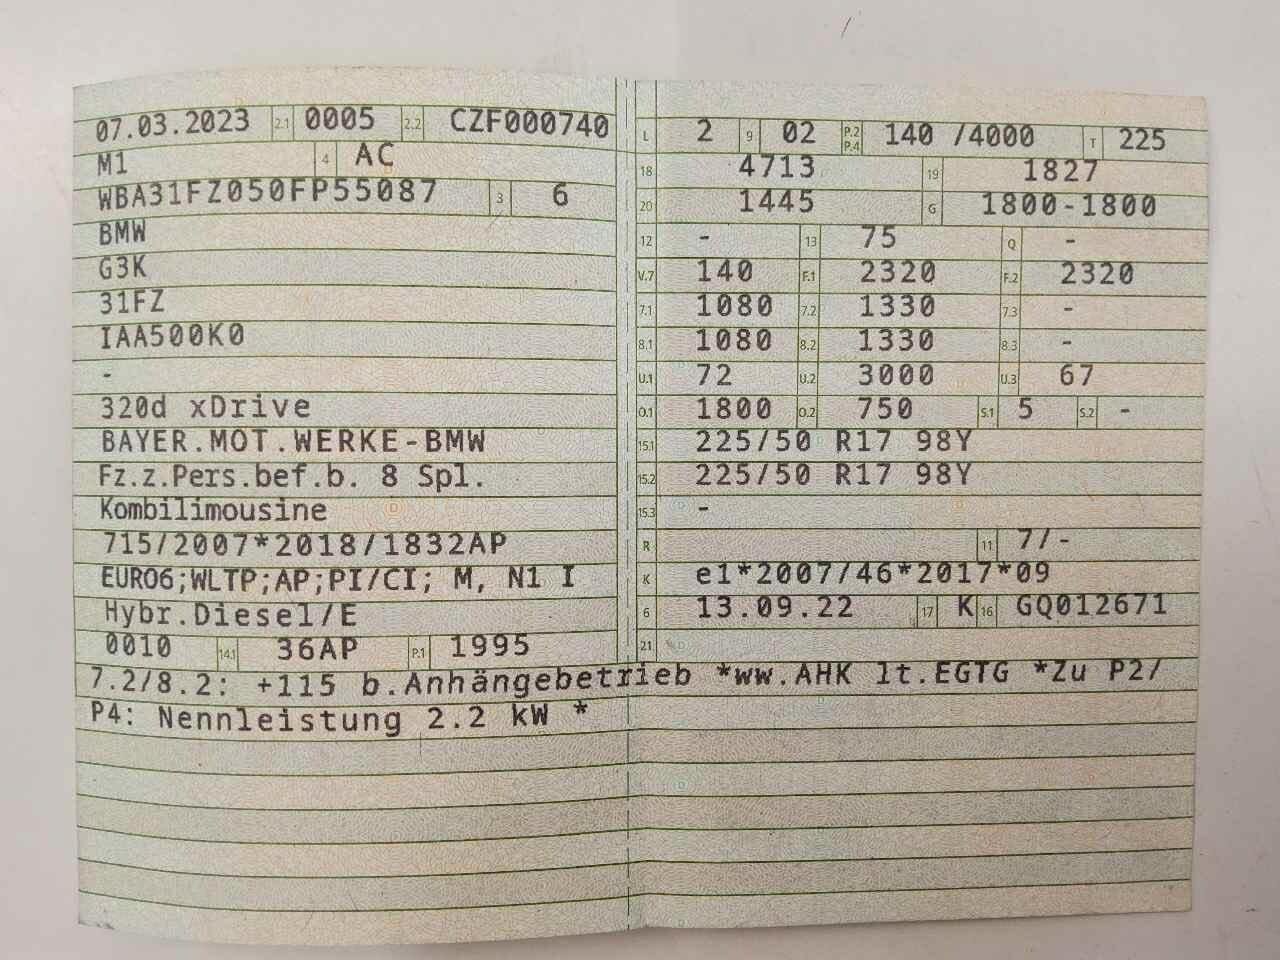 07.03.2023 2.1 0005 2.2 CZF000740
M1 4 AC
WBA31FZ050FP55087 3 6
BMW
G3K
31FZ
IAA500K0
-
320d xDrive
BAYER.MOT.WERKE-BMW
Fz.z.Pers.bef.b. 8 Spl.
Kombilimousine
715/2007*2018/1832AP
EURO6;WLTP;AP;PI/CI; M, N1 I
Hybr.Diesel/E
0010 14.1 36AP P.1 1995
L 2 9 02 P.2 P.4 140 /4000 T 225
18 4713 19 1827
20 1445 G 1800-1800
12 - 13 75 Q -
V.7 140 F.1 2320 F.2 2320
7.1 1080 7.2 1330 7.3 -
8.1 1080 8.2 1330 8.3 -
U.1 72 U.2 3000 U.3 67
O.1 1800 O.2 750 S.1 5 S.2 -
15.1 225/50 R17 98Y
15.2 225/50 R17 98Y
15.3 -
R 11 7/-
K e1*2007/46*2017*09
6 13.09.22 17 K 16 GQ012671
21
7.2/8.2: +115 b.Anhängebetrieb *ww.AHK lt.EGTG *Zu P2/
P4: Nennleistung 2.2 kW *